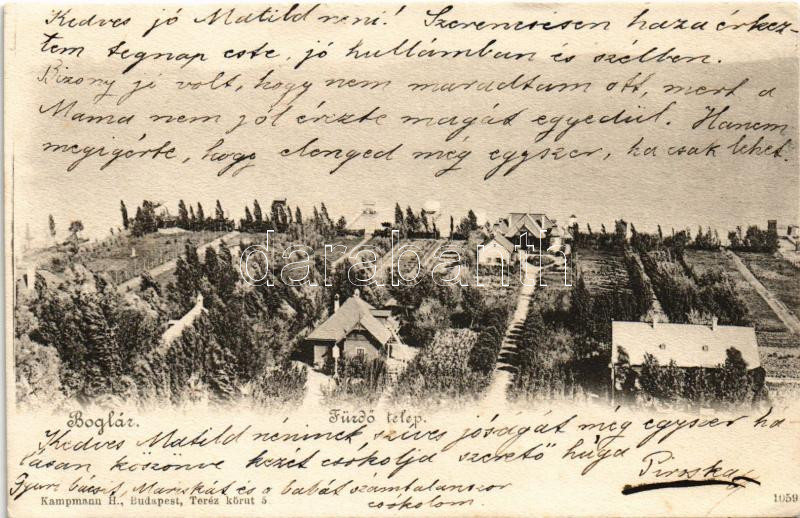 Kedves jó Matild néni! Szerencsésen haza érkez-
tem tegnap este, jó hullámban és szélben.
Bizony jó volt, hogy nem maradtam ott, mert a
Mama nem jól érezte magát egyedül. Hanem
megigérte, hogy elenged még egyszer, ha csak lehet.
darabanth.com
Boglár.
Fürdő telep.
Kedves Matild néninek szives jóságát még egyszer há-
lásan köszönve kezét csókolja szerető húga
Piroska
Gyuri bácsit, Mariskát és a babát számtalanszor
csókolom.
Kampmann H., Budapest, Teréz körut 5
1059